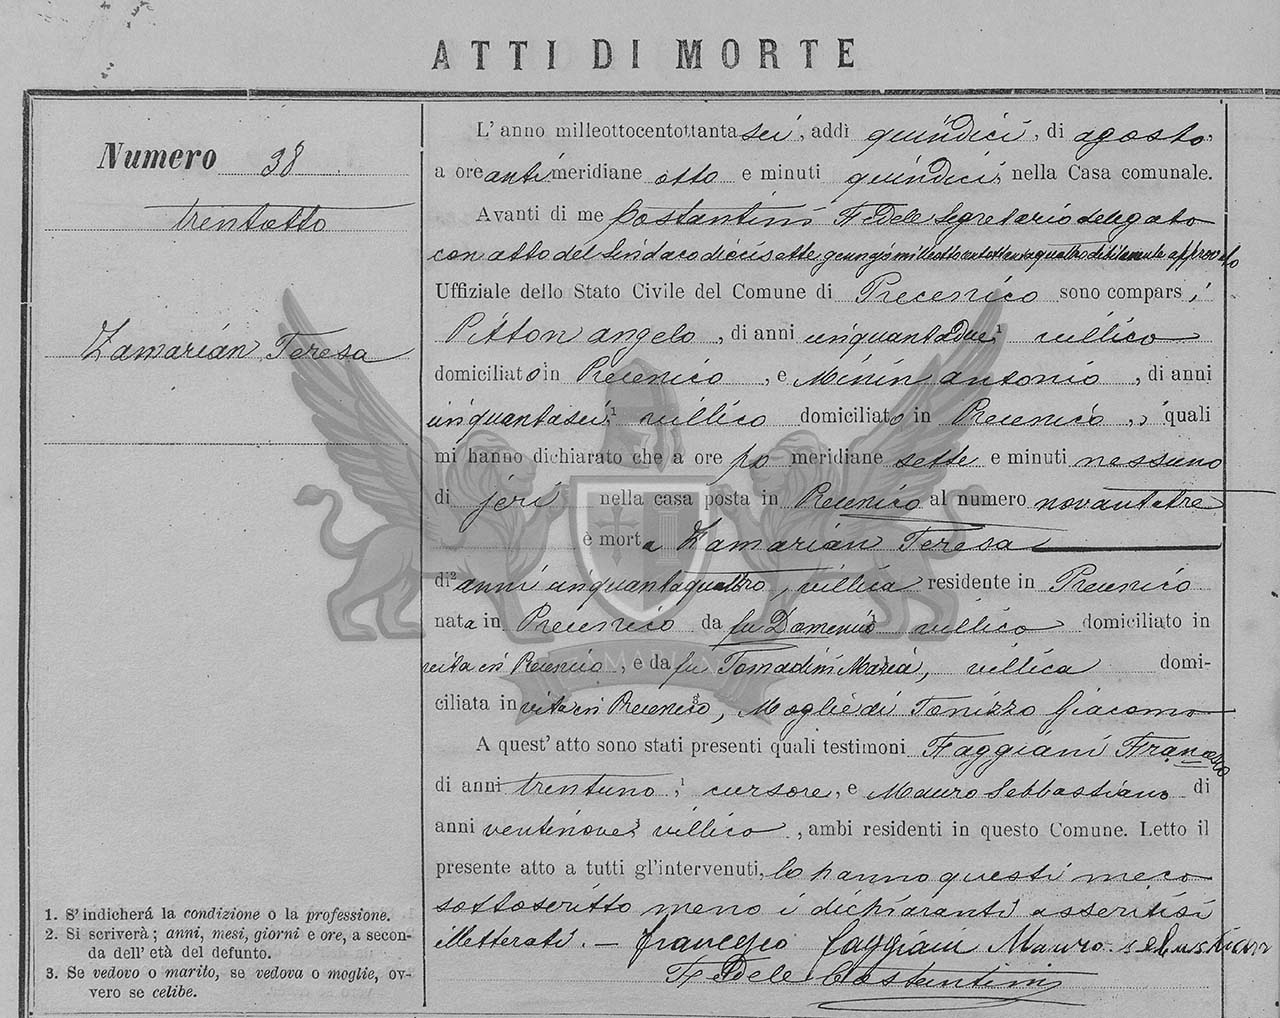 ATTI DI MORTE
Numero 38
trentotto
Zamarian Teresa
1. S'indicherá la condizione o la professione.
2. Si scriverà; anni, mesi, giorni e ore, a secon-
da dell' età del defunto.
3. Se vedovo o marito, se vedova o moglie, ov-
vero se celibe.
L' anno milleottocentottantasei, addì quindici, di agosto,
a ore antimeridiane otto e minuti quindici, nella Casa comunale.
Avanti di me Costantini Fedele Segretario delegato
con atto del Sindaco diecisette giugno milleottocentottantaquattro debitamente approvato
Uffiziale dello Stato Civile del Comune di Precenico sono comparsi
Pitton angelo, di anni cinquantadue,¹ villico
domiciliato in Precenico, e Minin antonio, di anni
cinquantasei,¹ villico domiciliato in Precenico, i quali
mi hanno dichiarato che a ore po meridiane sette e minuti nessuno
di jeri nella casa posta in Precenico al numero novantatre
è morta Zamarian Teresa
di² anni cinquantaquattro, villica residente in Precenico
nata in Precenico da fu Domenico villico domiciliato in
vita in Precenico, e da fu Tomadini Maria, villica domi-
ciliata in vita in Precenico,³ Moglie di Tonizzo Giacomo
A quest' atto sono stati presenti quali testimoni Faggiani Francesco
di anni trentuno,¹ cursore, e Mauro Sebbastiano di
anni ventinove¹ villico, ambi residenti in questo Comune. Letto il
presente atto a tutti gl'intervenuti, lo hanno questi meco
sottoscritto meno i dichiaranti asseritisi
illetterati. – francesco faggiani Mauro sebastian
Fedele Costantini